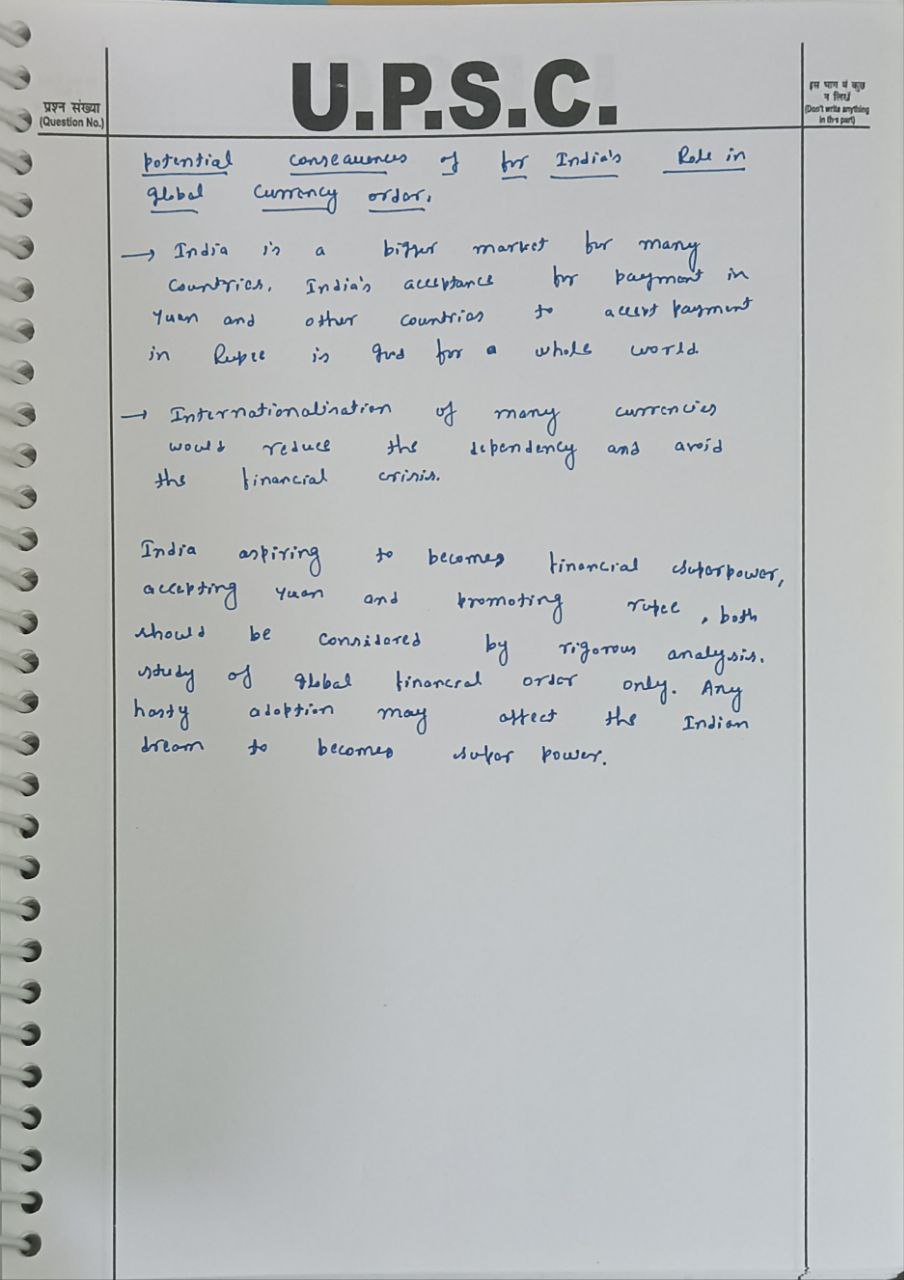 U.P.S.C.
प्रश्न संख्या
(Question No.)
इस भाग में कुछ
न लिखें
(Don't write anything
in this part)
potential consequences of for India's Role in
global currency order.
→ India is a bigger market for many
countries. India's acceptance for payment in
Yuan and other countries to accept payment
in Rupee is good for a whole world.
→ Internationalisation of many currencies
would reduce the dependency and avoid
the financial crisis.
India aspiring to becomes financial superpower,
accepting Yuan and promoting rupee, both
should be considered by rigorous analysis.
study of global financial order only. Any
hasty adoption may affect the Indian
dream to becomes super power.